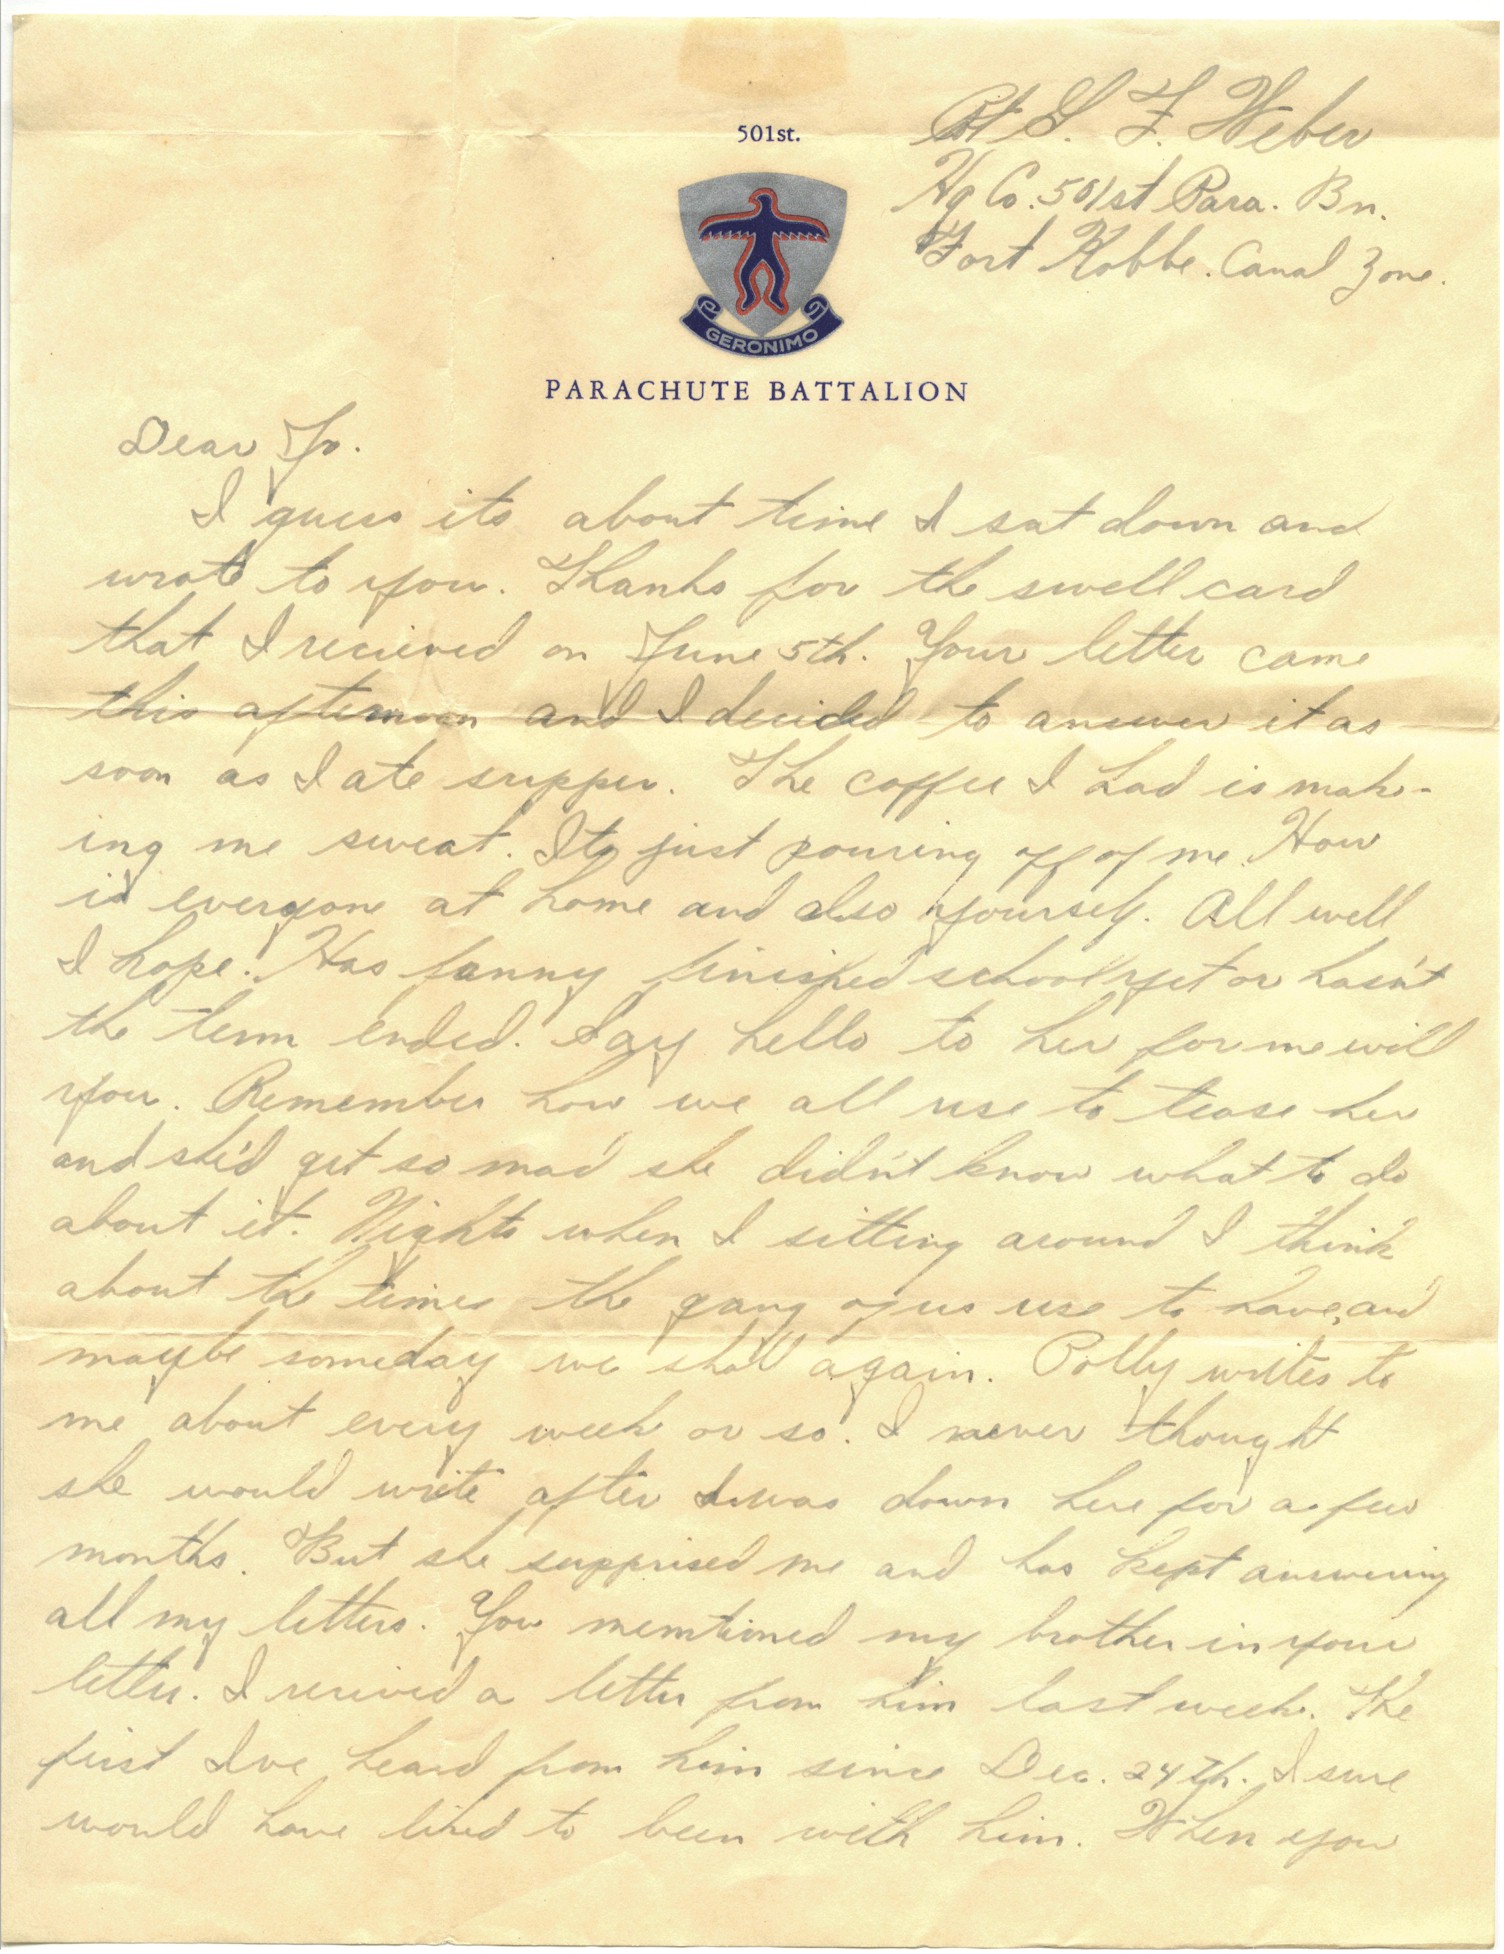 501st.
Pvt G. F. Weber
Hq Co. 501st Para. Bn.
Fort Kobbe. Canal Zone.
GERONIMO
PARACHUTE BATTALION
Dear Jo.
I guess its about time I sat down and
wrote to you. Thanks for the swell card
that I recieved on June 5th. Your letter came
this afternoon and I decided to answer it as
soon as I ate supper. The coffee I had is mak-
ing me sweat. Its just pouring off of me. How
is everyone at home and also yourself. All well
I hope. Has fanny finished school yet or hasn't
the term ended. Say hello to her for me will
you. Remember how we all use to tease her
and she'd get so mad she didn't know what to do
about it. Nights when I sitting around I think
about the times the gang of us use to have, and
maybe someday we shall again. Polly writes to
me about every week or so. I never thought
she would write after I was down here for a few
months. But she surprised me and has kept answering
all my letters. You memtioned my brother in your
letter. I recived a letter from him last week. The
first Ive heard from him since Dec. 24th. I sure
would have liked to been with him. When you